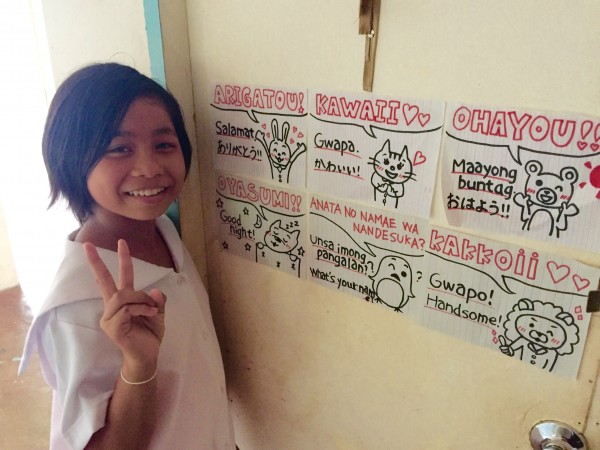 ARIGATOU!
Salamat
ありがとう!!
KAWAII♡♡
Gwapa.
かわいい!
OHAYOU!!
Maayong
buntag
おはよう!!
OYASUMI!!
Good
night!
zzz
ANATA NO NAMAE WA
NANDESUKA?
Unsa imong
pangalan?
What's your name
?
KAKKOii♡♡
Gwapo!
Handsome!